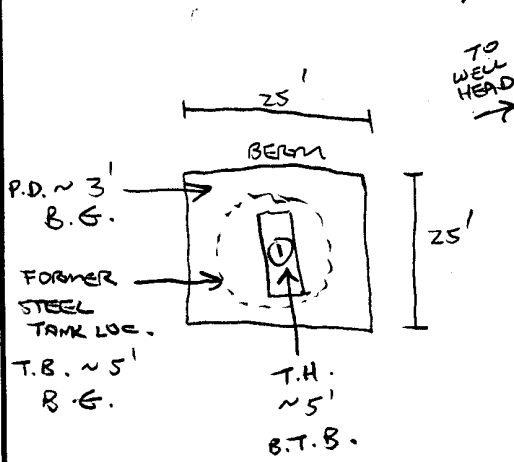 TO
WELL
HEAD
25'
BERM
P.D. ~ 3'
B.G.
25'
1
FORMER
STEEL
TANK LOC.
T.B. ~ 5'
B.G.
T.H.
~5'
B.T.B.